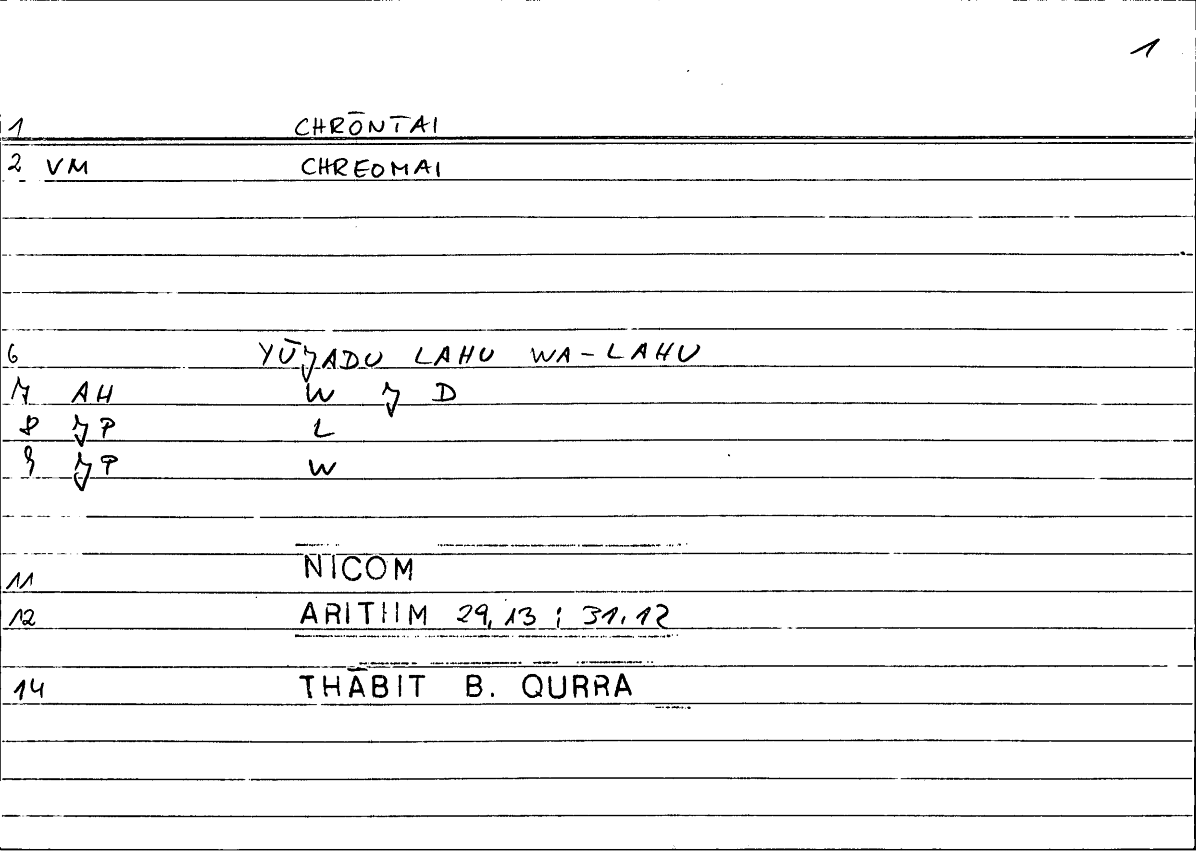 1
1 CHRŌNTAI
2 VM CHREOMAI
6 YŪJADU LAHU WA-LAHU
7 AH W J D
8 JP L
9 JP W
11 NICOM
12 ARITHM 29,13 ; 31,12
14 THĀBIT B. QURRA